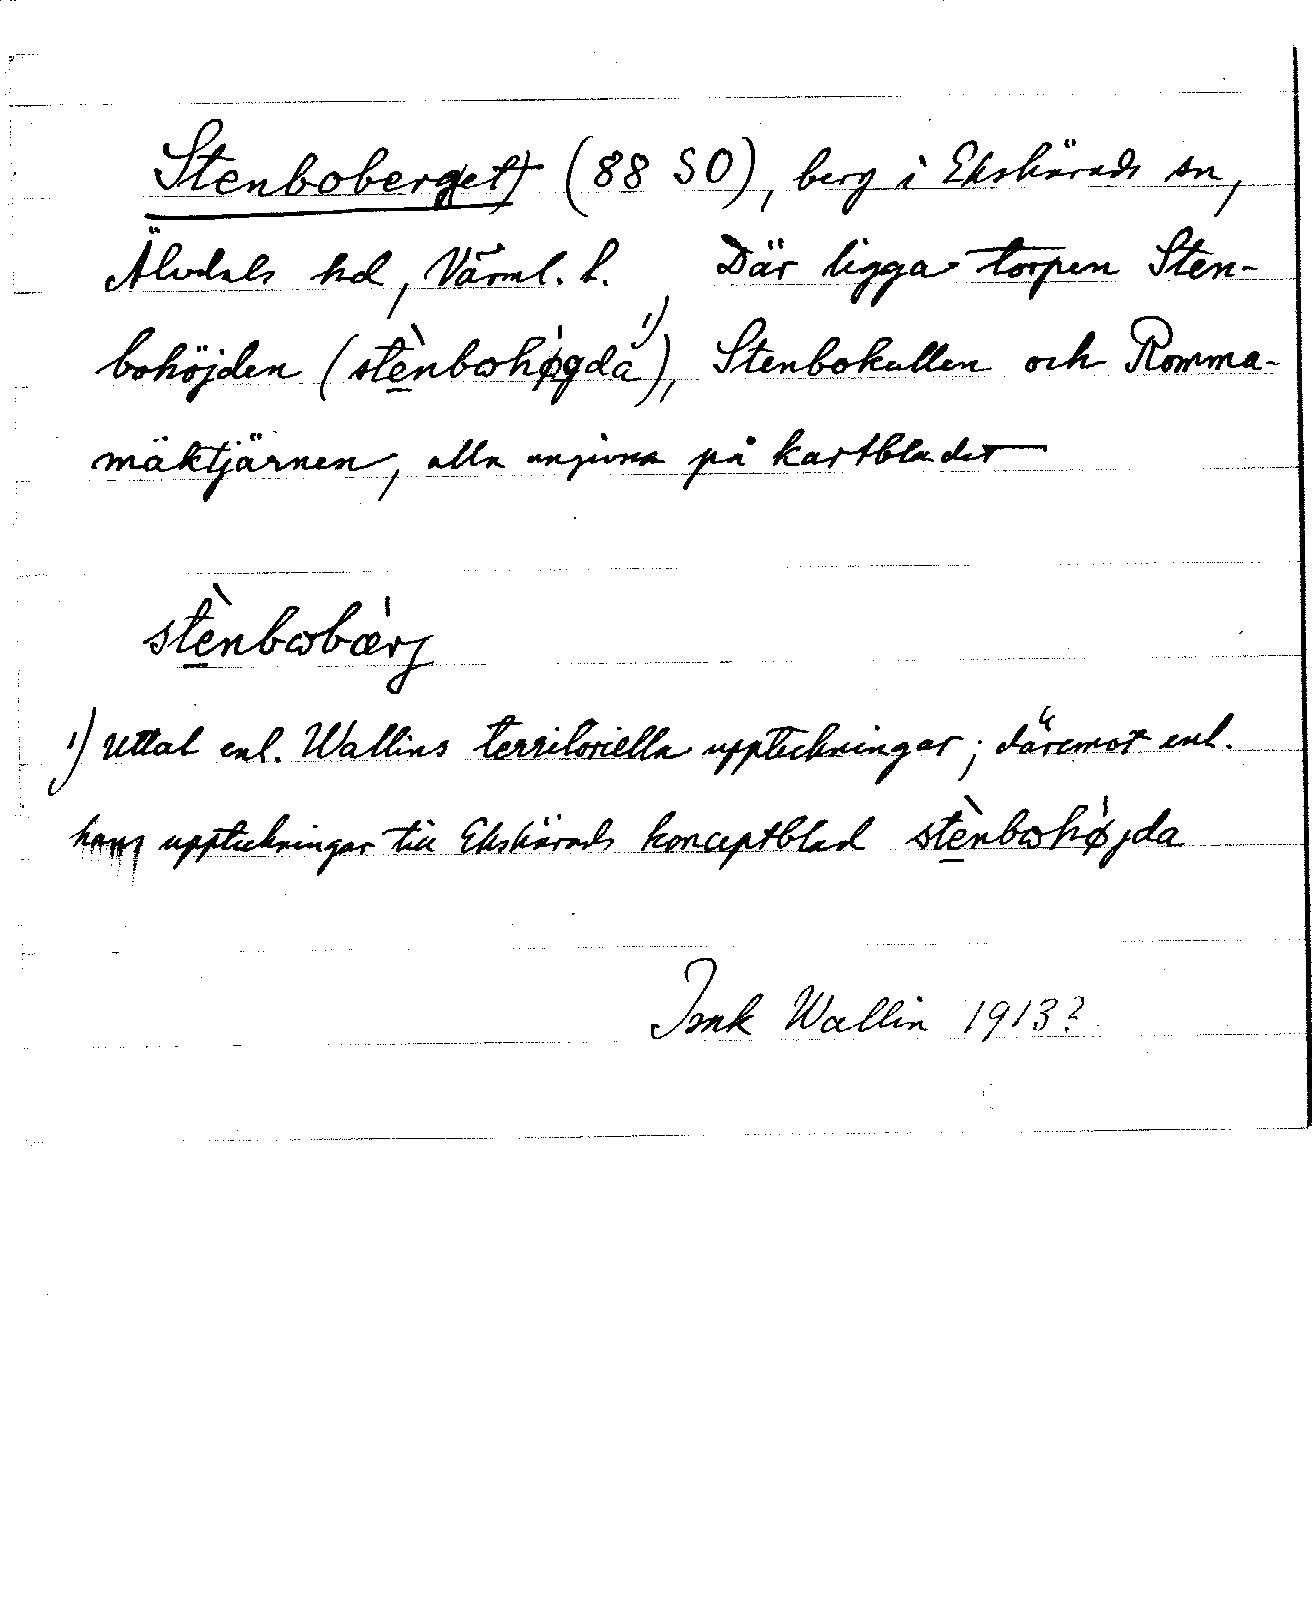 Stenboberg(et) (88 SO), berg i Ekshärads sn,
Älvdals hd, Värml. l. Där ligga torpen Sten-
bohöjden (stènbωhø̀gda¹⁾), Stenbokullen och Romma-
mäktjärnen, alla angivna på kartbladet
stènbωbær̀j
¹⁾ Uttal enl. Wallins territoriella uppteckningar; däremot enl.
hans uppteckningar till Ekshärads konceptblad stènbωhø̀jda
Isak Wallin 1913?